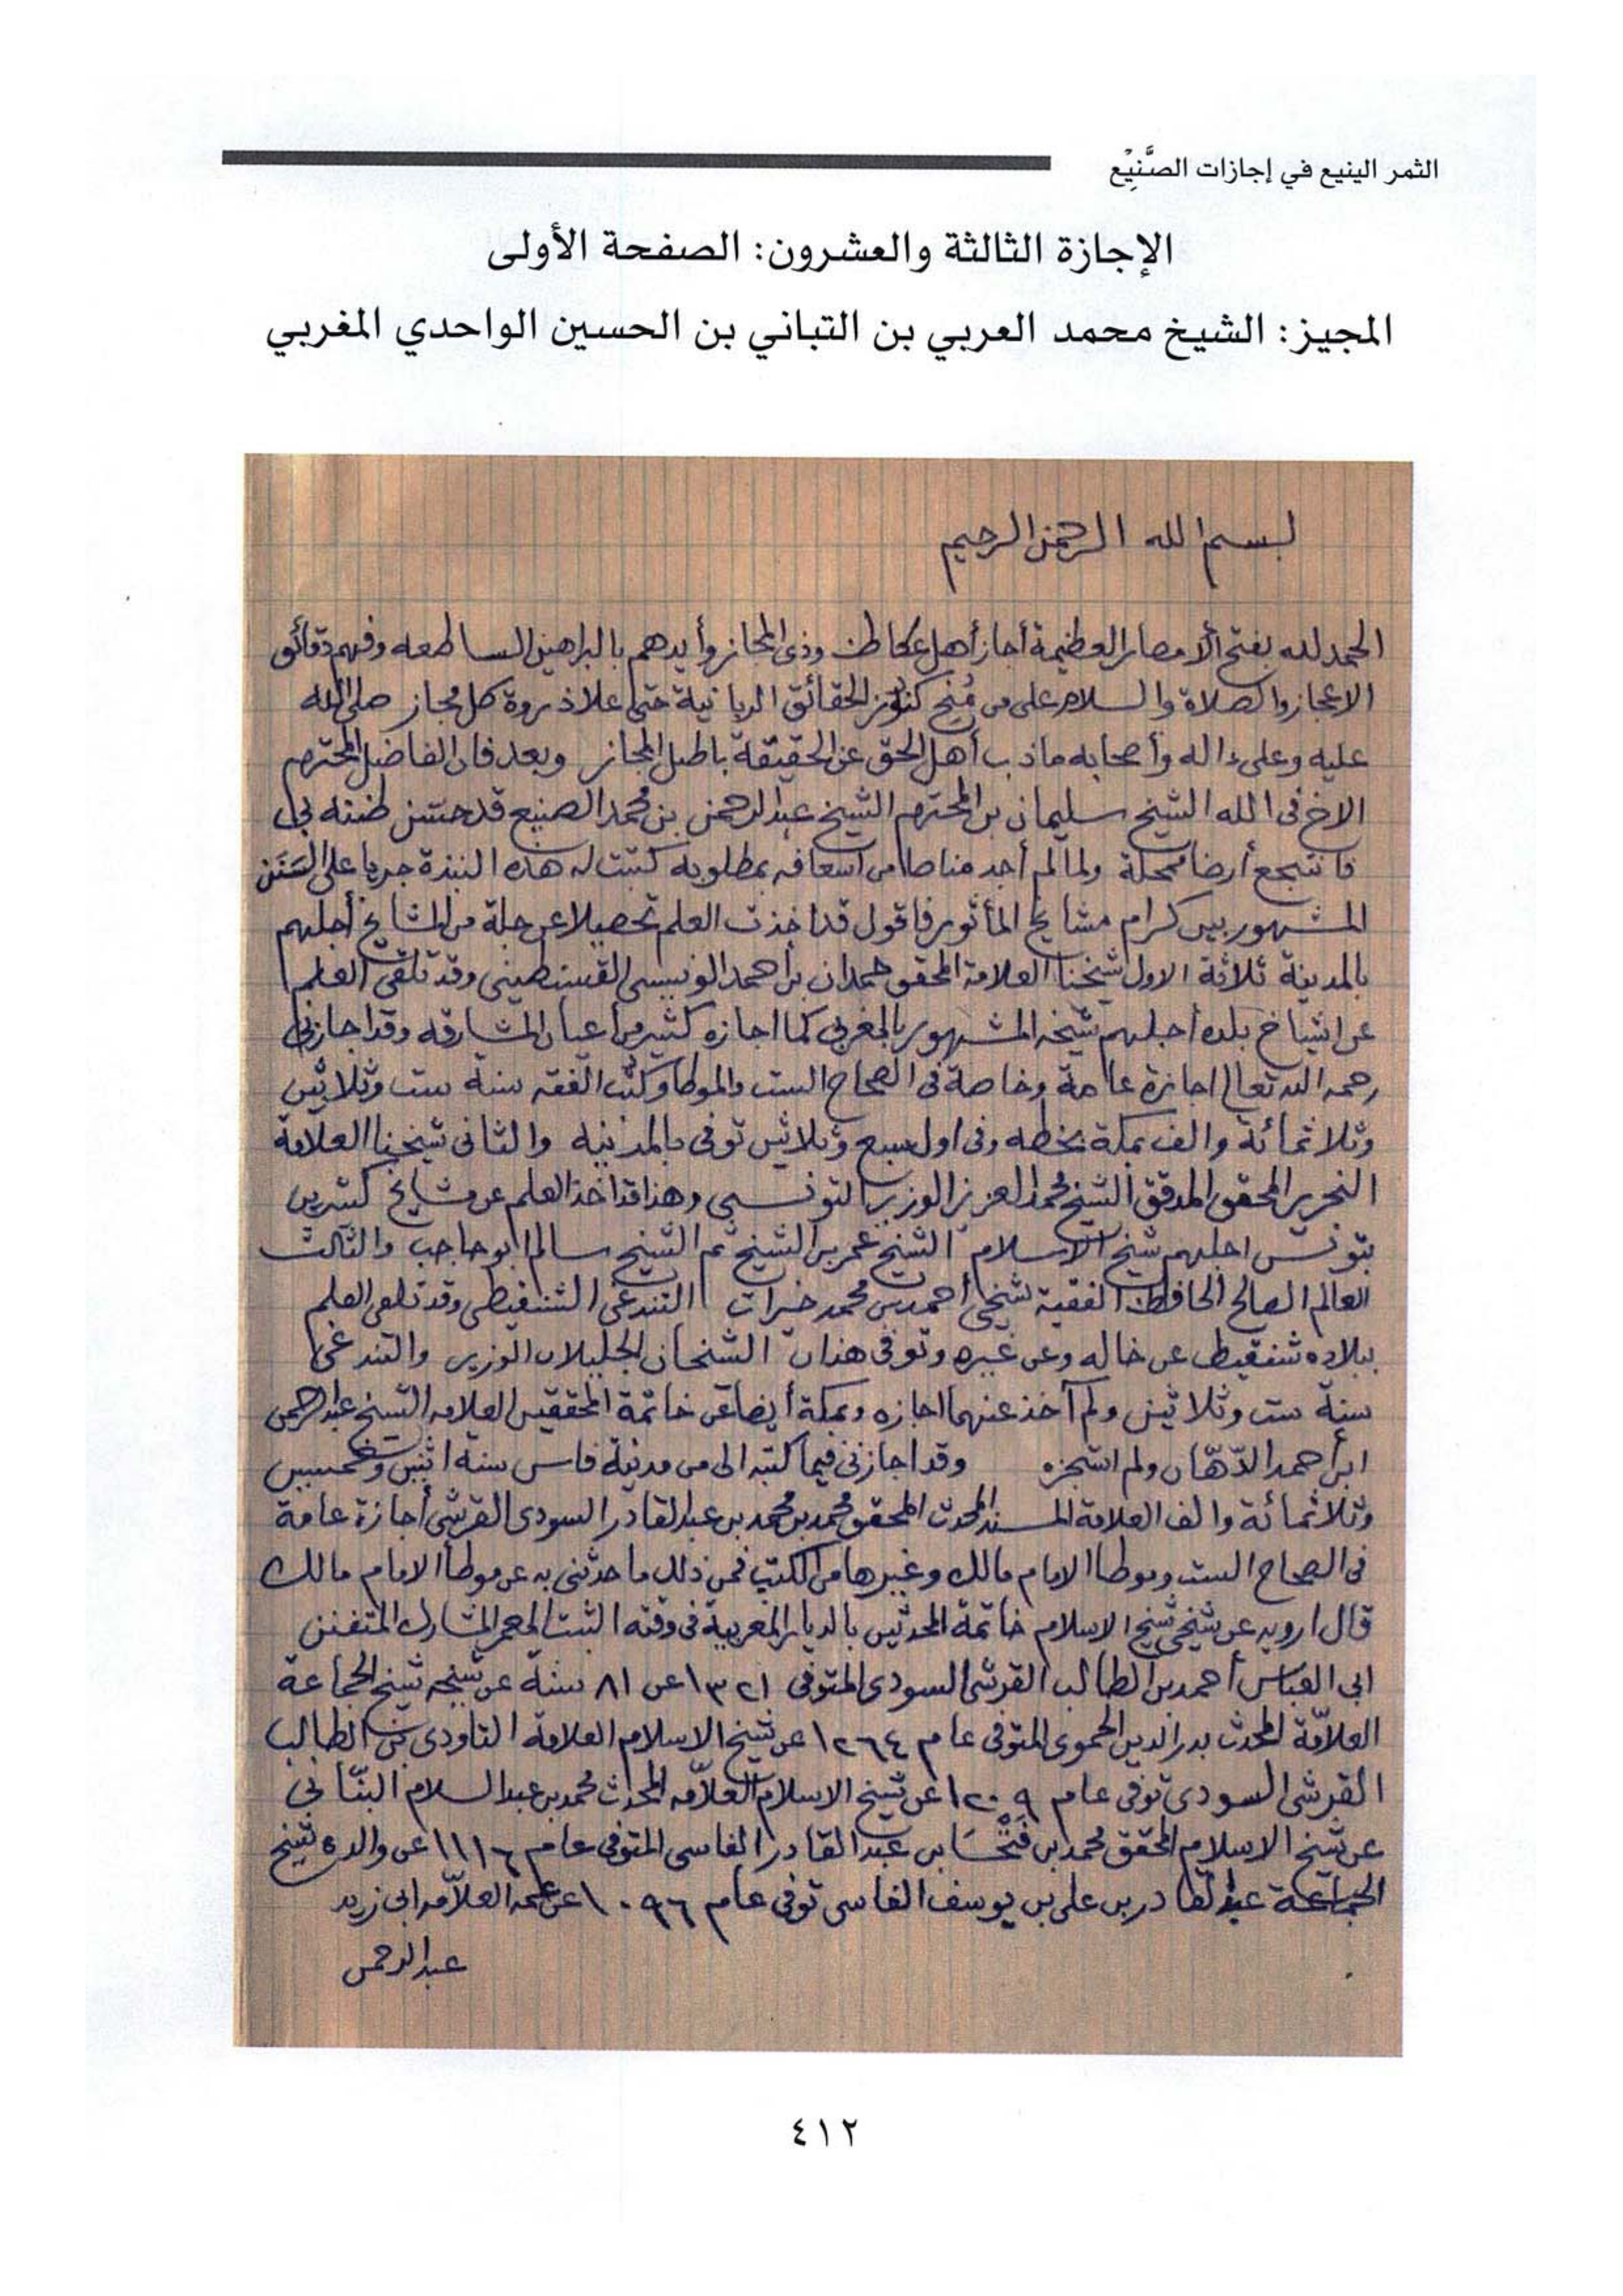 الثمر الينيع في إجازات الصَّنِيْع
الإجازة الثالثة والعشرون: الصفحة الأولى
المجيز: الشيخ محمد العربي بن التباني بن الحسين الواحدي المغربي
بسم الله الرحمن الرحيم
الحمد لله بفتح الأمصار العظيمة أجاز أهل عكاظ وذي المجاز وأيدهم بالبراهين الساطعه وفهم دقائق
الاعجاز والصلاة والسلام على من مُنِح كنوز الحقائق الربانية حتى علا ذروة كل مجاز صلى الله
عليه وعلى ءاله وأصحابه ما ذب أهل الحق عن الحقيقة باطل المجاز وبعد فان الفاضل المحترم
الاخ فى الله الشيخ سليمان بن المحترم الشيخ عبد الرحمن بن محمد الصنيع قد حسّن ظنه بي
فانتجع أرضا ممحلة ولما لم أجد مناصا من اسعافه بمطلوبه كتبت له هذه النبذة جريا على السَنَن
المشهور بين كرام مشايخ المأثور فاقول قد اخذت العلم تحصيلا عن جلة من المشايخ أجلهم
بالمدينة ثلاثة الاول شيخنا العلامة المحقق حمدان بن احمد الونيسي القسنطيني وقد تلقى العلم
عن اشياخ بلده أجلهم شيخه المشهور بالمغربي كما اجازه كثير من أعيان المشارقه وقد اجازني
رحمه الله تعالى اجازة عامة وخاصة فى الصحاح الست والموطا وكتب الفقه سنة ست وثلاثين
وثلاثمائة والف بمكة بخطه وفى اول سبع وثلاثين توفى بالمدينه والثانى شيخنا العلامة
النحرير المحقق المدقق الشيخ محمد العزيز الوزير التونسى وهذا قد اخذ العلم عن مشايخ كثيرين
بتونس اجلهم شيخ الاسلام الشيخ عمر بن الشيخ ثم الشيخ سالم ابو حاجب والثالث
العالم الصالح الحافظ الفقيه شيخى أحمد بن محمد خيرات التندغى الشنقيطى وقد تلقى العلم
ببلاده شنقيط عن خاله وعن غيره وتوفى هذان الشخان الجليلان الوزير والتندغى
سنة ست وثلاثين ولم آخذ عنهما اجازه وبمكة أيضا عن خاتمة المحققين العلامه الشيخ عبد الرحمن
ابن أحمد الدّهّان ولم استجزه وقد اجازنى فيما كتبه الى من مدينة فاس سنة اثنين وخمسين
وثلاثمائة والف العلامة المسند المحدث المحقق محمد بن محمد بن عبد القادر السودى القرشى أجازة عامة
فى الصحاح الست وموطا الامام مالك وغيرها من الكتب فمن ذلك ما حدثنى به عن موطأ الامام مالك
قال ارويه عن شيخى شيخ الاسلام خاتمة المحدثين بالديار المغربية فى وقته الثبت المعمر المشارك المتفنن
ابى العباس أحمد بن الطالب القرشى السودى المتوفى ١٣٢١ عن ٨١ سنة عن شيخه شيخ الجماعة
العلاّمة المحدث بدر الدين الحموى المتوفى عام ١٢٦٤ عن شيخ الاسلام العلامة التاودى بن الطالب
القرشى السودى توفى عام ١٢٠٩ عن شيخ الاسلام العلاّمه المحدث محمد بن عبد السلام البنّانى
عن شيخ الاسلام المحقق محمد بن فَتْحَا بن عبد القادر الفاسى المتوفى عام ١١١٦ عن والده شيخ
الجماعة عبد القادر بن على بن يوسف الفاسى توفى عام ١٠٩٦ عن عمه العلاّمه ابى زيد
عبد الرحمن
٤١٢